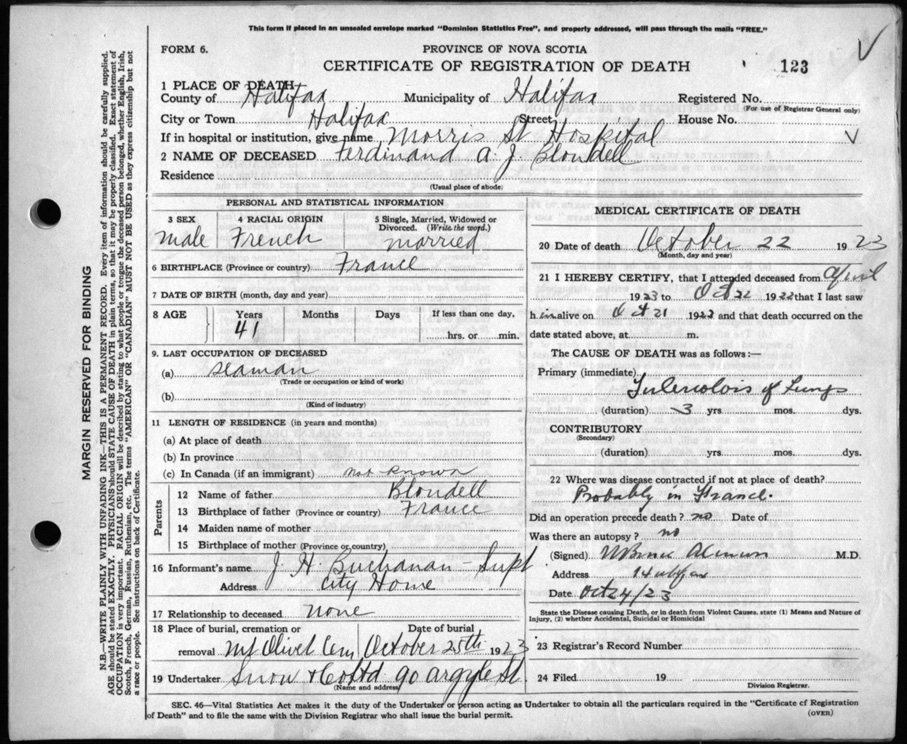 This form if placed in an unsealed envelope marked "Dominion Statistics Free", and properly addressed, will pass through the mails "FREE."
FORM 6.
PROVINCE OF NOVA SCOTIA
CERTIFICATE OF REGISTRATION OF DEATH
123
1 PLACE OF DEATH
County of Halifax Municipality of Halifax Registered No.
(For use of Registrar General only)
City or Town Halifax Street House No.
If in hospital or institution, give name Morris St Hospital
2 NAME OF DECEASED Ferdinand A. J. Blondell
Residence
(Usual place of abode)
PERSONAL AND STATISTICAL INFORMATION
3 SEX 4 RACIAL ORIGIN 5 Single, Married, Widowed or Divorced. (Write the word.)
male French married
6 BIRTHPLACE (Province or country) France
7 DATE OF BIRTH (month, day and year)
8 AGE Years Months Days If less than one day,
41 hrs. or min.
9. LAST OCCUPATION OF DECEASED
(a) Seaman
(Trade or occupation or kind of work)
(b)
(Kind of industry)
11 LENGTH OF RESIDENCE (in years and months)
(a) At place of death
(b) In province
(c) In Canada (if an immigrant) not known
Parents
12 Name of father Blondell
13 Birthplace of father (Province or country) France
14 Maiden name of mother
15 Birthplace of mother (Province or country)
16 Informant's name J. H. Buchanan - Supt
Address City Home
17 Relationship to deceased none
18 Place of burial, cremation or removal Date of burial
Mt Olivet Cem October 25th 1923
19 Undertaker Snow & Co Ltd 90 Argyle St.
(Name and address)
MEDICAL CERTIFICATE OF DEATH
20 Date of death October 22 1923
(Month, day and year)
21 I HEREBY CERTIFY, that I attended deceased from April
1923 to Oct 22 1922 that I last saw
h im alive on Oct 21 1923 and that death occurred on the
date stated above, at m.
The CAUSE OF DEATH was as follows:—
Primary (immediate)
Tuberculosis of Lungs
(duration) 3 yrs. mos. dys.
CONTRIBUTORY
(Secondary)
(duration) yrs. mos. dys.
22 Where was disease contracted if not at place of death?
Probably in France.
Did an operation precede death? no Date of
Was there an autopsy? no
(Signed) M.D.
Address Halifax
Date Oct 24/23
State the Disease causing Death, or in death from Violent Causes, state (1) Means and Nature of Injury, (2) whether Accidental, Suicidal or Homicidal
23 Registrar's Record Number
24 Filed 19
Division Registrar.
SEC. 46—Vital Statistics Act makes it the duty of the Undertaker or person acting as Undertaker to obtain all the particulars required in the "Certificate of Registration
of Death" and to file the same with the Division Registrar who shall issue the burial permit.
(OVER)
MARGIN RESERVED FOR BINDING
N.B.—WRITE PLAINLY WITH UNFADING INK—THIS IS A PERMANENT RECORD. Every item of information should be carefully supplied.
AGE should be stated EXACTLY. PHYSICIANS should STATE CAUSE OF DEATH in plain terms, so that it may be properly classified. Exact statement of
OCCUPATION is very important. RACIAL ORIGIN will be described by stating to what people or tongue the deceased person belonged, whether English, Irish,
Scotch, French, German, Russian, Ruthenian, etc. The terms "AMERICAN" OR "CANADIAN" MUST NOT BE USED as they express citizenship but not
a race or people. See instructions on back of Certificate.